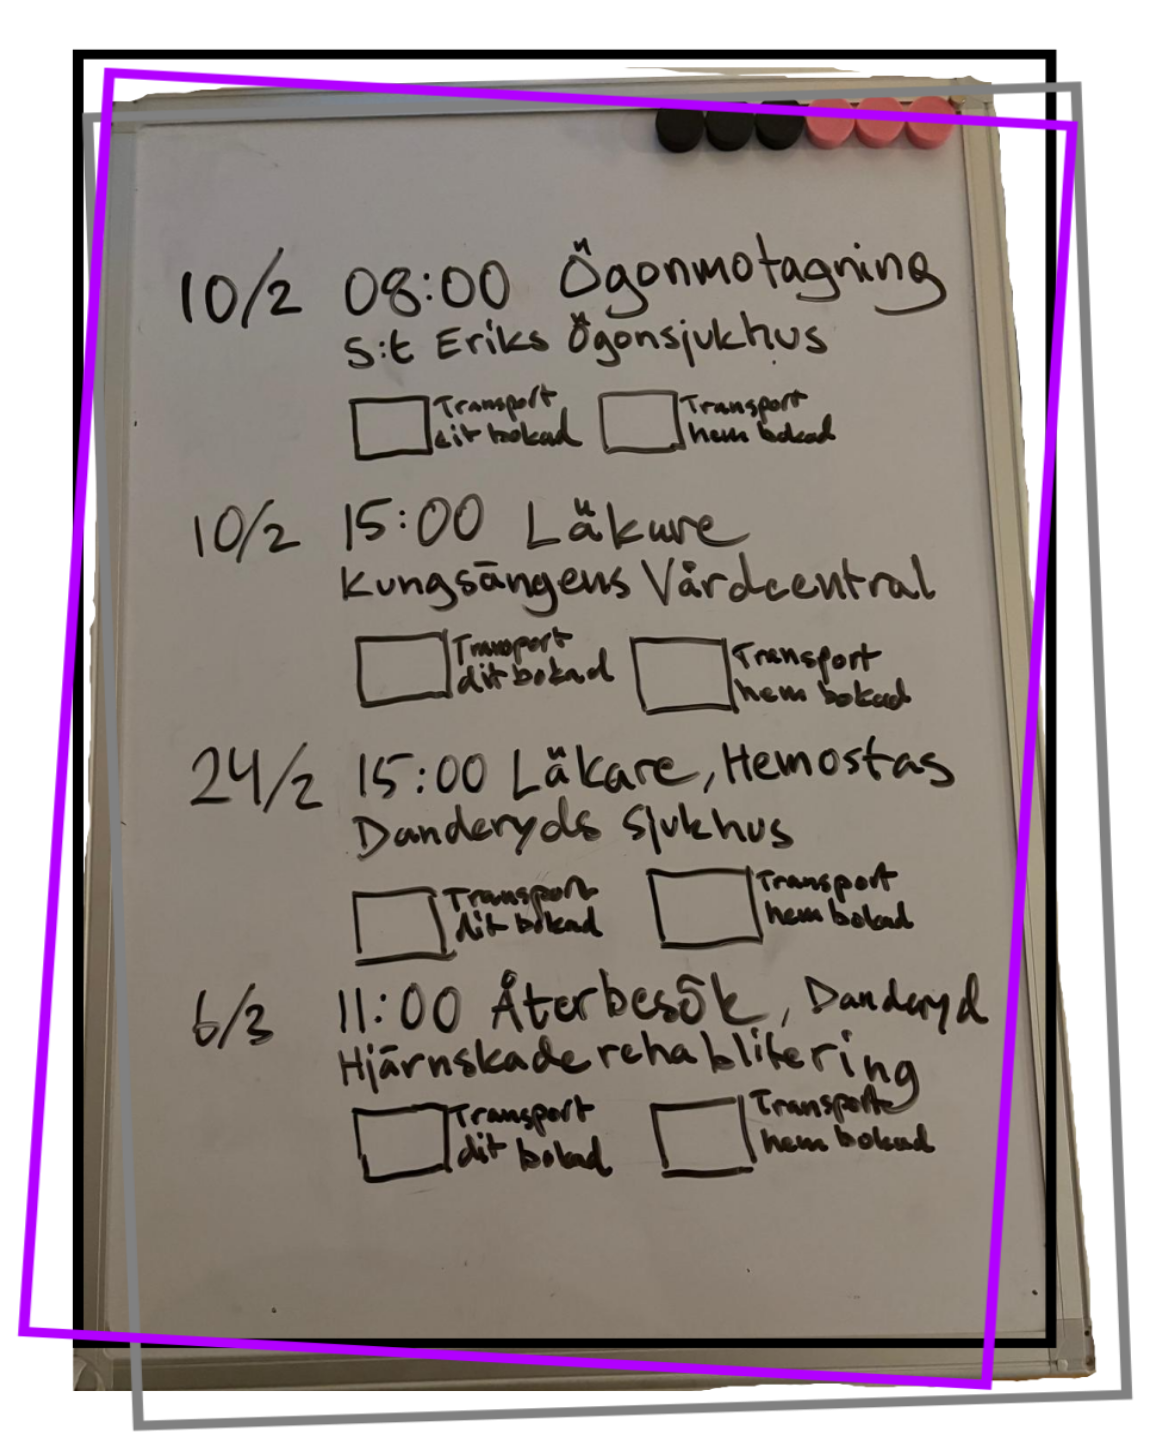 10/2 08:00 Ögonmotagning
S:t Eriks Ögonsjukhus
Transport Transport
dit bokad hem bokad
10/2 15:00 Läkare
Kungsängens Vårdcentral
Transport Transport
dit bokad hem bokad
24/2 15:00 Läkare, Hemostas
Danderyds sjukhus
Transport Transport
dit bokad hem bokad
6/3 11:00 Återbesök, Danderyd
Hjärnskaderehablitering
Transport Transport
dit bokad hem bokad